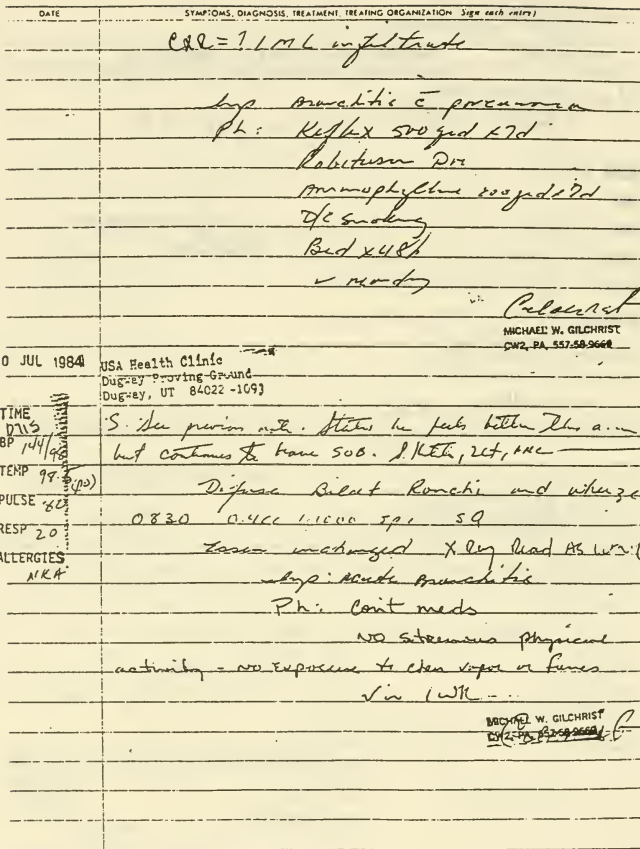 DATE SYMPTOMS, DIAGNOSIS, TREATMENT, TREATING ORGANIZATION Sign each entry)
CXR = ? LML infiltrate
Imp Bronchitis c̄ pneumonia
Ph: Keflex 500 qid x7d
Robitussin DM
Aminophylline 200 qid x7d
D/C smoking
Bed x48h
✓ monday
MICHAEL W. GILCHRIST
CW2, PA, 557-58-9660
0 JUL 1984 USA Health Clinic
Dugway Proving Ground
Dugway, UT 84022-1093
TIME 0715
BP 144/98
TEMP 98.5 (po)
PULSE 80
RESP 20
ALLERGIES NKA
S: See previous note. States he feels better this a.m
but continues to have SOB.
Diffuse Bilat Ronchi and wheeze
0830 0.4cc 1:1000 Epi SQ
unchanged X Ray Read AS WNL
Imp: Acute Bronchitis
Ph: Cont meds
NO Strenuous physical
activity - NO Exposure to chem vapor or fumes
✓ in 1 WK
MICHAEL W. GILCHRIST
CW2, PA, 557-58-9660